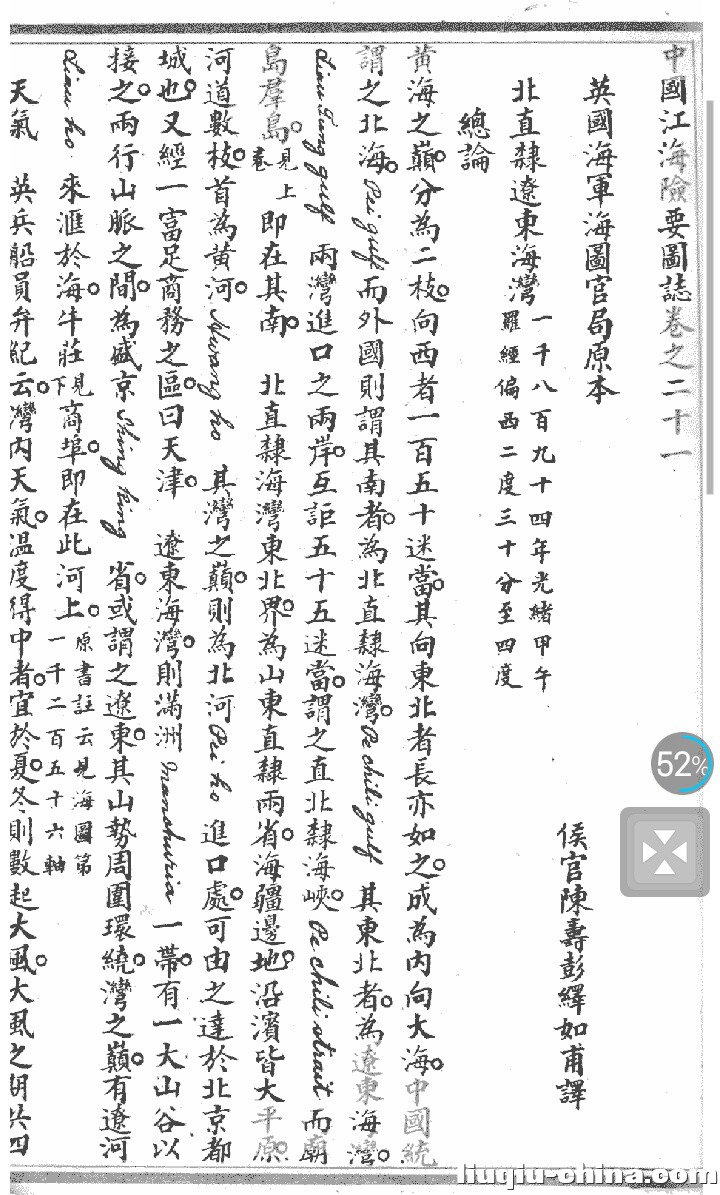 中國江海險要圖誌卷之二十一
英國海軍海圖官局原本
侯官陳壽彭繹如甫譯
北直隸遼東海灣 一千八百九十四年光緒甲午
羅經偏西二度三十分至四度
總論
黃海之巔分為二枝。向西者一百五十迷當。其向東北者長亦如之。成為內向大海。中國統
謂之北海。Pei gulf 而外國則謂其南者。為北直隸海灣。Pe chili gulf 其東北者。為遼東海灣。
Liau Tung gulf 兩灣進口之兩岸。互距五十五迷當。謂之直北隸海峽。Pe chili strait 而廟
島羣島。見上卷 即在其南。 北直隸海灣東北界。為山東直隸兩省。海疆邊地。沿濱皆大平原。
河道數枝。首為黃河。Hwang ho 其灣之巔。則為北河 Pei ho 進口處。可由之達於北京都
城也。又經一富足商務之區。曰天津。 遼東海灣。則滿洲 Manchuria 一帶。有一大山谷以
接之。兩行山脈之間。為盛京 Shing king 省。或謂之遼東。其山勢周圍環繞。灣之巔。有遼河
Liau ho 來滙於海。牛莊 見下 商埠。即在此河上。原書註云見海圖第一千二百五十六軸
天氣 英兵船員弁紀云。灣內天氣。溫度得中者。宜於夏。冬則數起大風。大風之期共四
52%
liuqiu-china.com